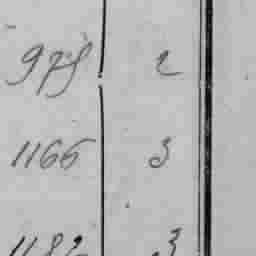 975 2
1166 3
1182 3